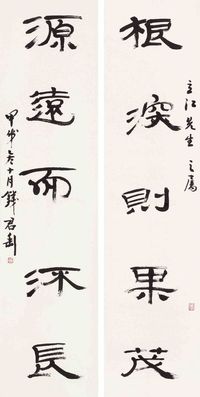 根深則果茂
立江先生之屬
源遠而流長
甲戌冬十月錢君匋